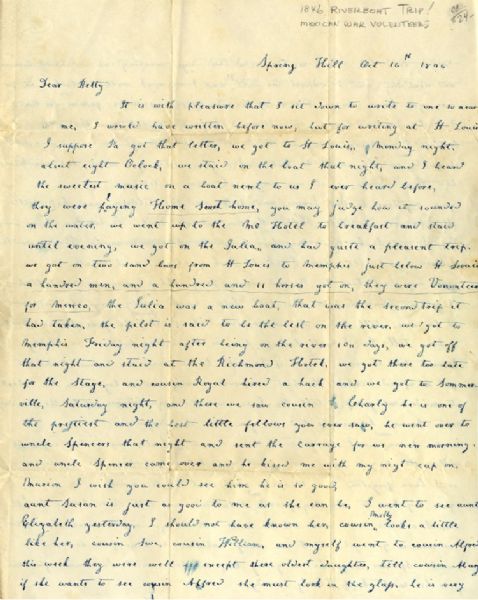 1846 RIVERBOAT TRIP!
MEXICAN WAR VOLUNTEERS
Spring Hill Oct 16th 1846
Dear Hetty
It is with pleasure that I sit down to write to one so near
to me, I would have written before now, but for writing at St Louis
I suppose Pa got that letter, we got to St Louis, Monday night,
about eight Oclock, we staid on the boat that night, and I heard
the sweetest music on a boat next to us I ever heard before,
they were playing Home Sweet home, you may judge how it sounded
on the water, we went up to the Mo Hotel to breakfast and staid
until evening, we got on the Julia, and had quite a pleasent trip.
we got on two sand bars from St Louis to Memphis just below St Louis
a hundred men, and a hundred and 15 horses got on, they were Volunteers
for Mexico, the Julia was a new boat, that was the second trip it
had taken, the pilot is said to be the best on the river, we got to
Memphis Friday night after being on the river days, we got off
that night and staid at the Richmond Hotel, we got there too late
for the Stage, and cousin Royal hired a hack and we got to Sommer-
ville, Saturday night, and there we saw cousin Charly he is one of
the prettiest and the best little fellows you ever saw, he went over to
uncle Spencers that night and sent the carrage for us next morning.
and uncle Spencer came over and he kissed me with my night cap on.
I wish you could see him he is so good,
aunt Susan is just as good to me as she can be, I went to see aunt
Elizabeth yesterday, I should not have known her, cousin Molly looks a little
like her, cousin Sue, cousin William, and myself went to cousin Alfred
this week they were well except there oldest daughter, tell cousin Mary
if she wants to see cousin Alfred she must look in the glass, he is very